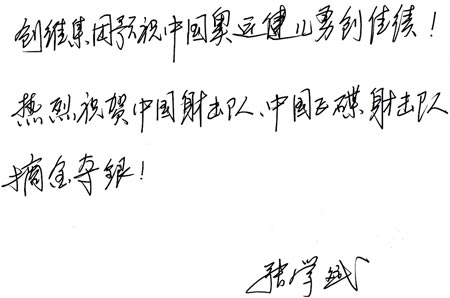 创维集团预祝中国奥运健儿勇创佳绩！
热烈祝贺中国射击队、中国飞碟射击队
摘金夺银！
张学斌